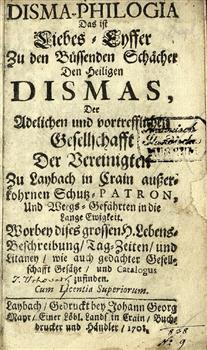 DISMA-PHILOGIA
Das ist
Liebes-Eyffer
Zu den Büssenden Schächer
Den Heiligen
DISMAS,
Der
Adelichen und vortrefflichen
Gesellschafft
Der Vereinigten
Zu Laybach in Crain außer-
kohrnen Schutz-PATRON,
Und Weegs-Gefährten in die
Lange Ewigkeit.
Worbey dises grossen H. Lebens-
Beschreibung / Tag-Zeiten / und
Litaney / wie auch gedachter Gesell-
schafft Gesätze / und Catalogus
zufinden.
Cum Licentia Superiorum.
Laybach / Gedruckt bey Johann Georg
Mayr / Einer Löbl. Landl. in Crain / Buch-
drucker und Händler /
N: 9